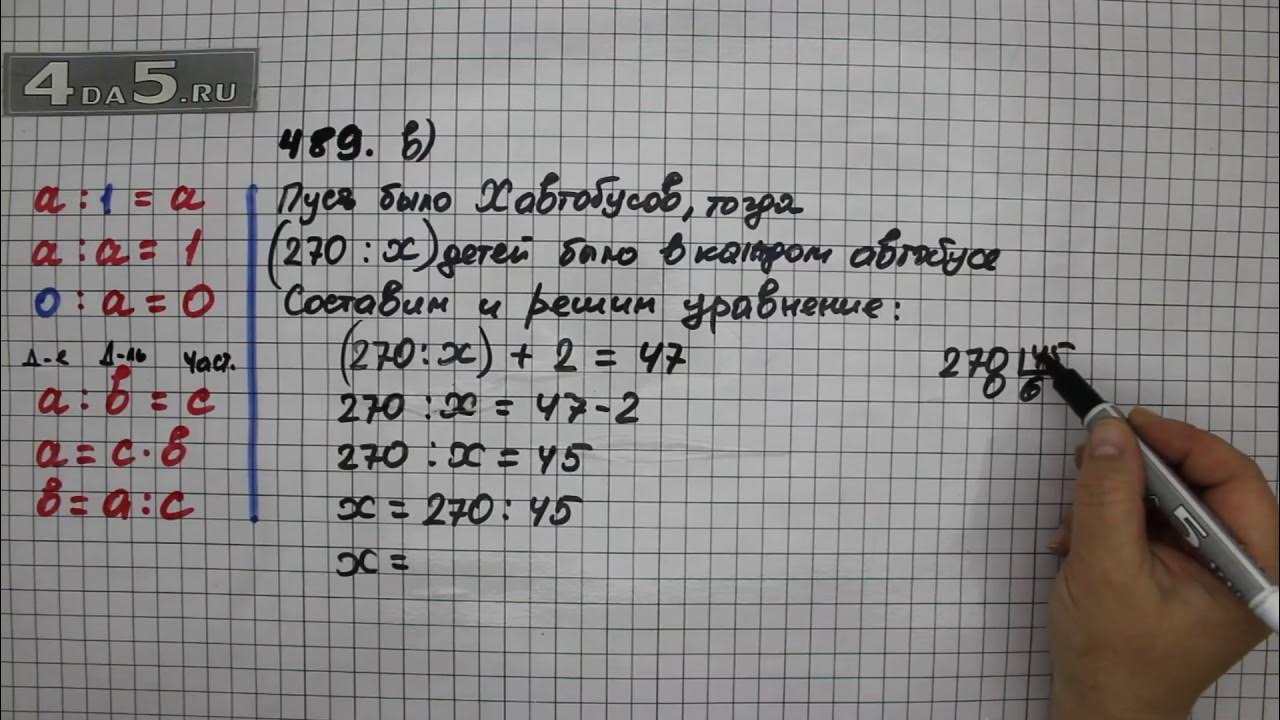 4DA5.RU
489. в)
Пусть было X автобусов, тогда
(270 : x) детей было в каждом автобусе
Составим и решим уравнение:
(270 : x) + 2 = 47
270 : x = 47 - 2
270 : x = 45
x = 270 : 45
x =
a : 1 = a
a : a = 1
0 : a = 0
Д-е Д-ль Част.
a : b = c
a = c · b
b = a : c
270 45
0 6
5